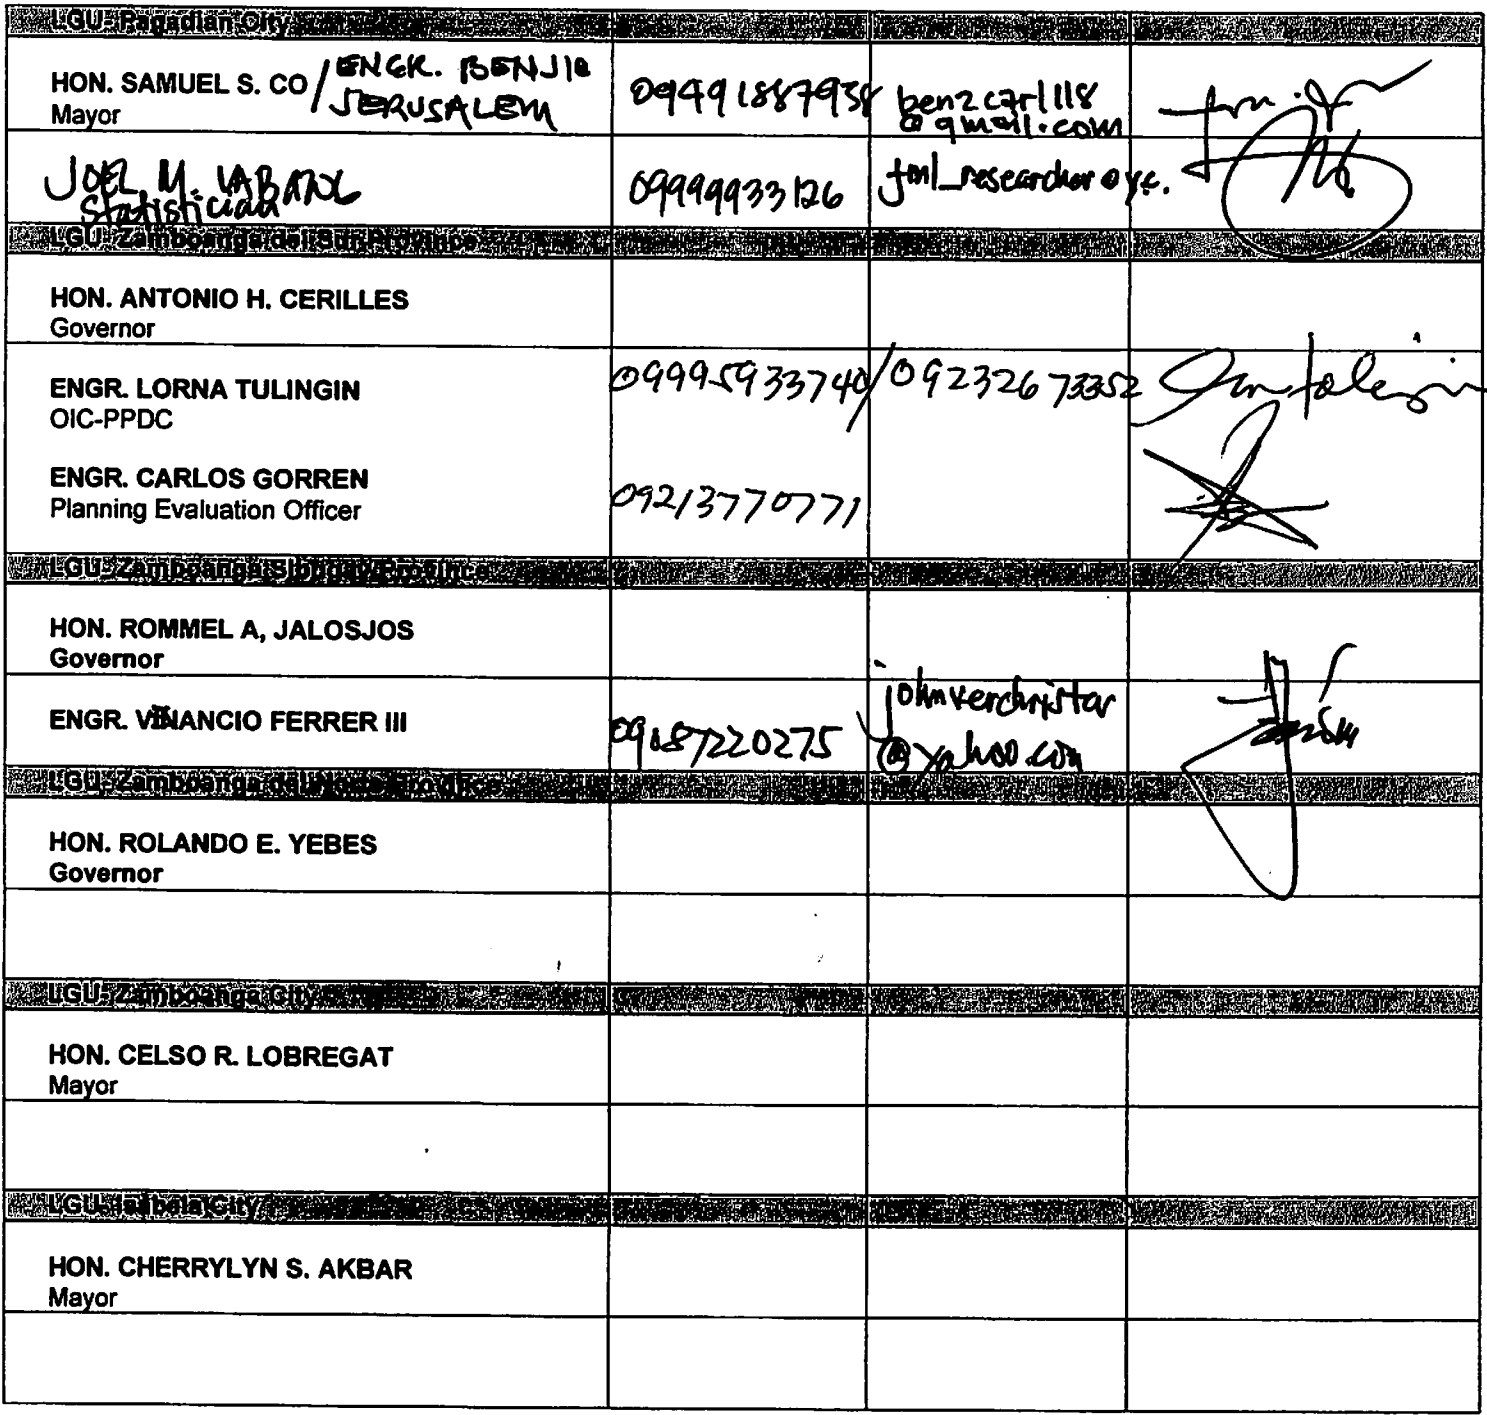 LGU- Pagadian City
HON. SAMUEL S. CO / ENGR. BENJIE
Mayor JERUSALEM
09491887938
benzcarl118
@gmail.com
JOEL M. LABANG
Statistician
09999933126
jml_researcher@y.c.
LGU- Zamboanga del Sur Province
HON. ANTONIO H. CERILLES
Governor
ENGR. LORNA TULINGIN
OIC-PPDC
09995933740/09232673352
ENGR. CARLOS GORREN
Planning Evaluation Officer
09213770771
LGU- Zamboanga Sibugay Province
HON. ROMMEL A, JALOSJOS
Governor
ENGR. VENANCIO FERRER III
09187220275
johnverchristar
@yahoo.com
LGU- Zamboanga del Norte Province
HON. ROLANDO E. YEBES
Governor
LGU- Zamboanga City
HON. CELSO R. LOBREGAT
Mayor
LGU- Isabela City
HON. CHERRYLYN S. AKBAR
Mayor